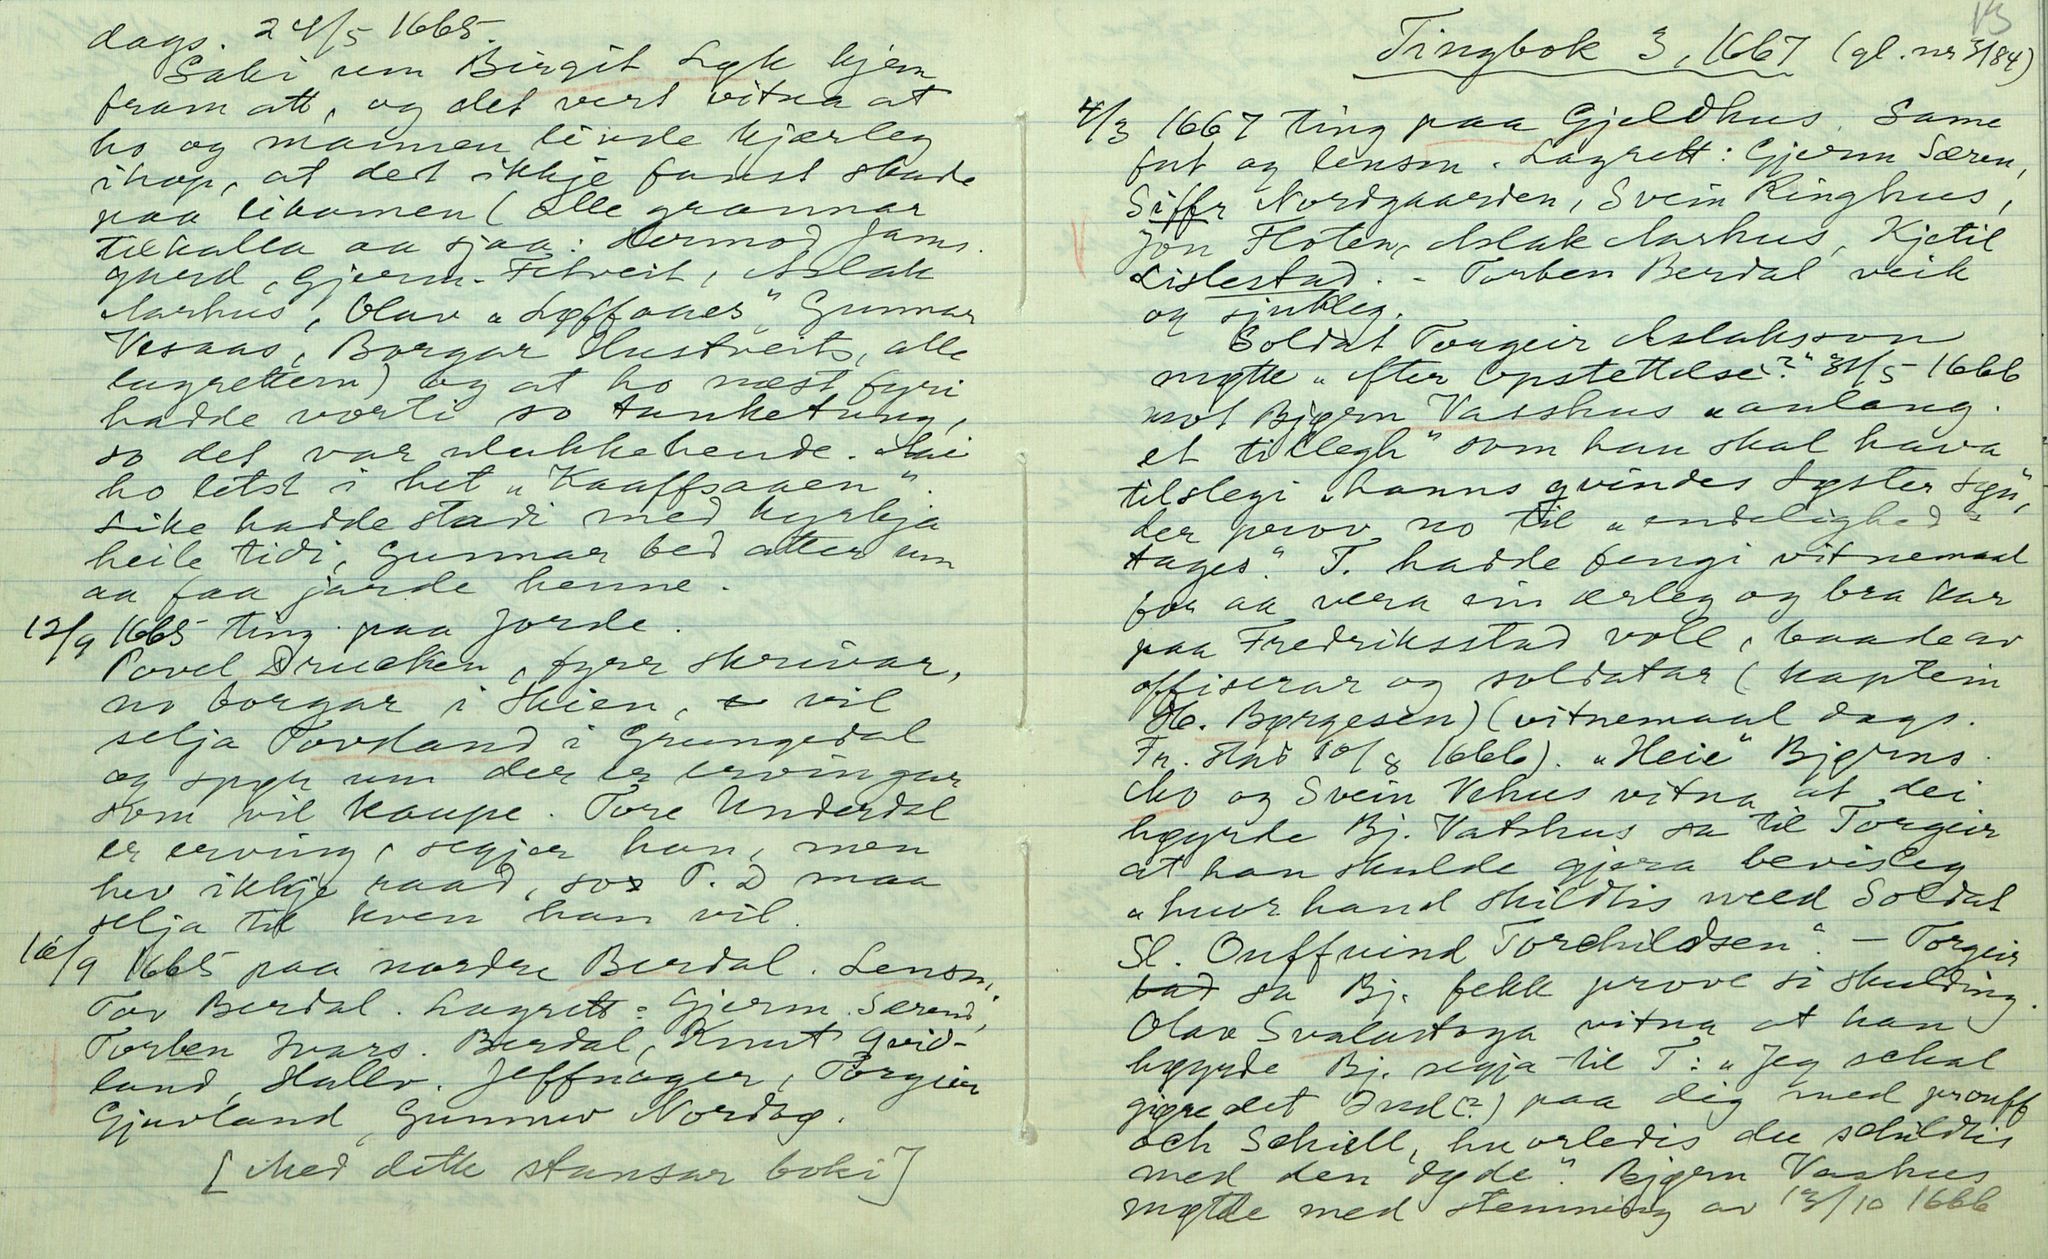 dags. 24/5 1665.
Saki um Birgit Lyk kjem
fram att, og det vert vitna at
ho og mannen livde kjærleg
ihop, at det ikkje fanst skade
paa likamen (alle grannar
tilkalla aa sjaa: Aermod Jams-
gaard, Gjerm. Fitveit, Aslak
Aarhus, Olav „Løffaaes" Gunnar
Vesaas, Borgar Hustveit, alle
lagrettem) og at ho næst fyri
hadde vorti so tanketung,
so det var ulukkehende.
ho letst i het „Kaaffsaaen".
Like hadde stadi med kyrkja
heile tidi, Gunnar bed atter um
aa faa jorde henne.
12/9 1665 ting paa Jorde.
Povel Drucken, fyrr skrivar,
no borgar i Skien, vil
selja Tovsland i Grungedal
og spyr um der er ervingar
som vil kaupe. Tore Underdal
er erving, segjer han, men
hev ikkje raad, so P. D maa
selja til kven han vil.
16/9 1665 paa nordre Berdal. Lensm.
Tov Berdal. Lagrett: Gjerm. Særend,
Torben Ivars. Berdal, Knut Qvid-
land, Hallv. Jeffnager, Torgeir
Gjuvland, Gunnuv Nordbø.
[Med dette stansar boki]
13
Tingbok 3, 1667 (gl. nr 3/84)
4/3 1667 ting paa Gjeldhus. Same
fut og lensm. Lagrett: Gjerm Særen,
Siffr Nordgaarden, Svein Ringhus,
Jon Floten, Aslak Aarhus, Kjetil
Lislestad. - Torben Berdal veik
og sjukleg.
Soldat Torgeir Aslaksson
møtte „efter Opstettelse?" 31/5 1666
mot Bjørn Vasshus „anlang.
et tillegh" som han skal hava
tilslegi „hanns qvindes Syster Søn",
der prov no til „endelighed
tages." T. hadde fengi vitnemaal
for aa vera ein ærleg og bra kar
paa Fredriksstad voll, baade av
offiserar og soldatar (kaptein
H. Børgesen) (vitnemaal dags.
Fr. stad 10/8 1666). „Heie" Bjørns.
Mo og Svein Vehus vitna at dei
høyrde Bj. Vatshus sa til Torgeir
at han skulde gjera bevisleg
„huor hand skildtis meed Soldat
Sl. Ouffuind Torchildsen". - Torgeir
bad sa Bj. fekk prove si skulding.
Olav Svalastoga vitna at han
høyrde Bj. segja til T: „Jeg schal
giøre det Ind(?) paa dig med prouff
och Schiell, huorledis du schildtis
med den døde". Bjørn Vashus
møtte med stemning av 13/10 1666